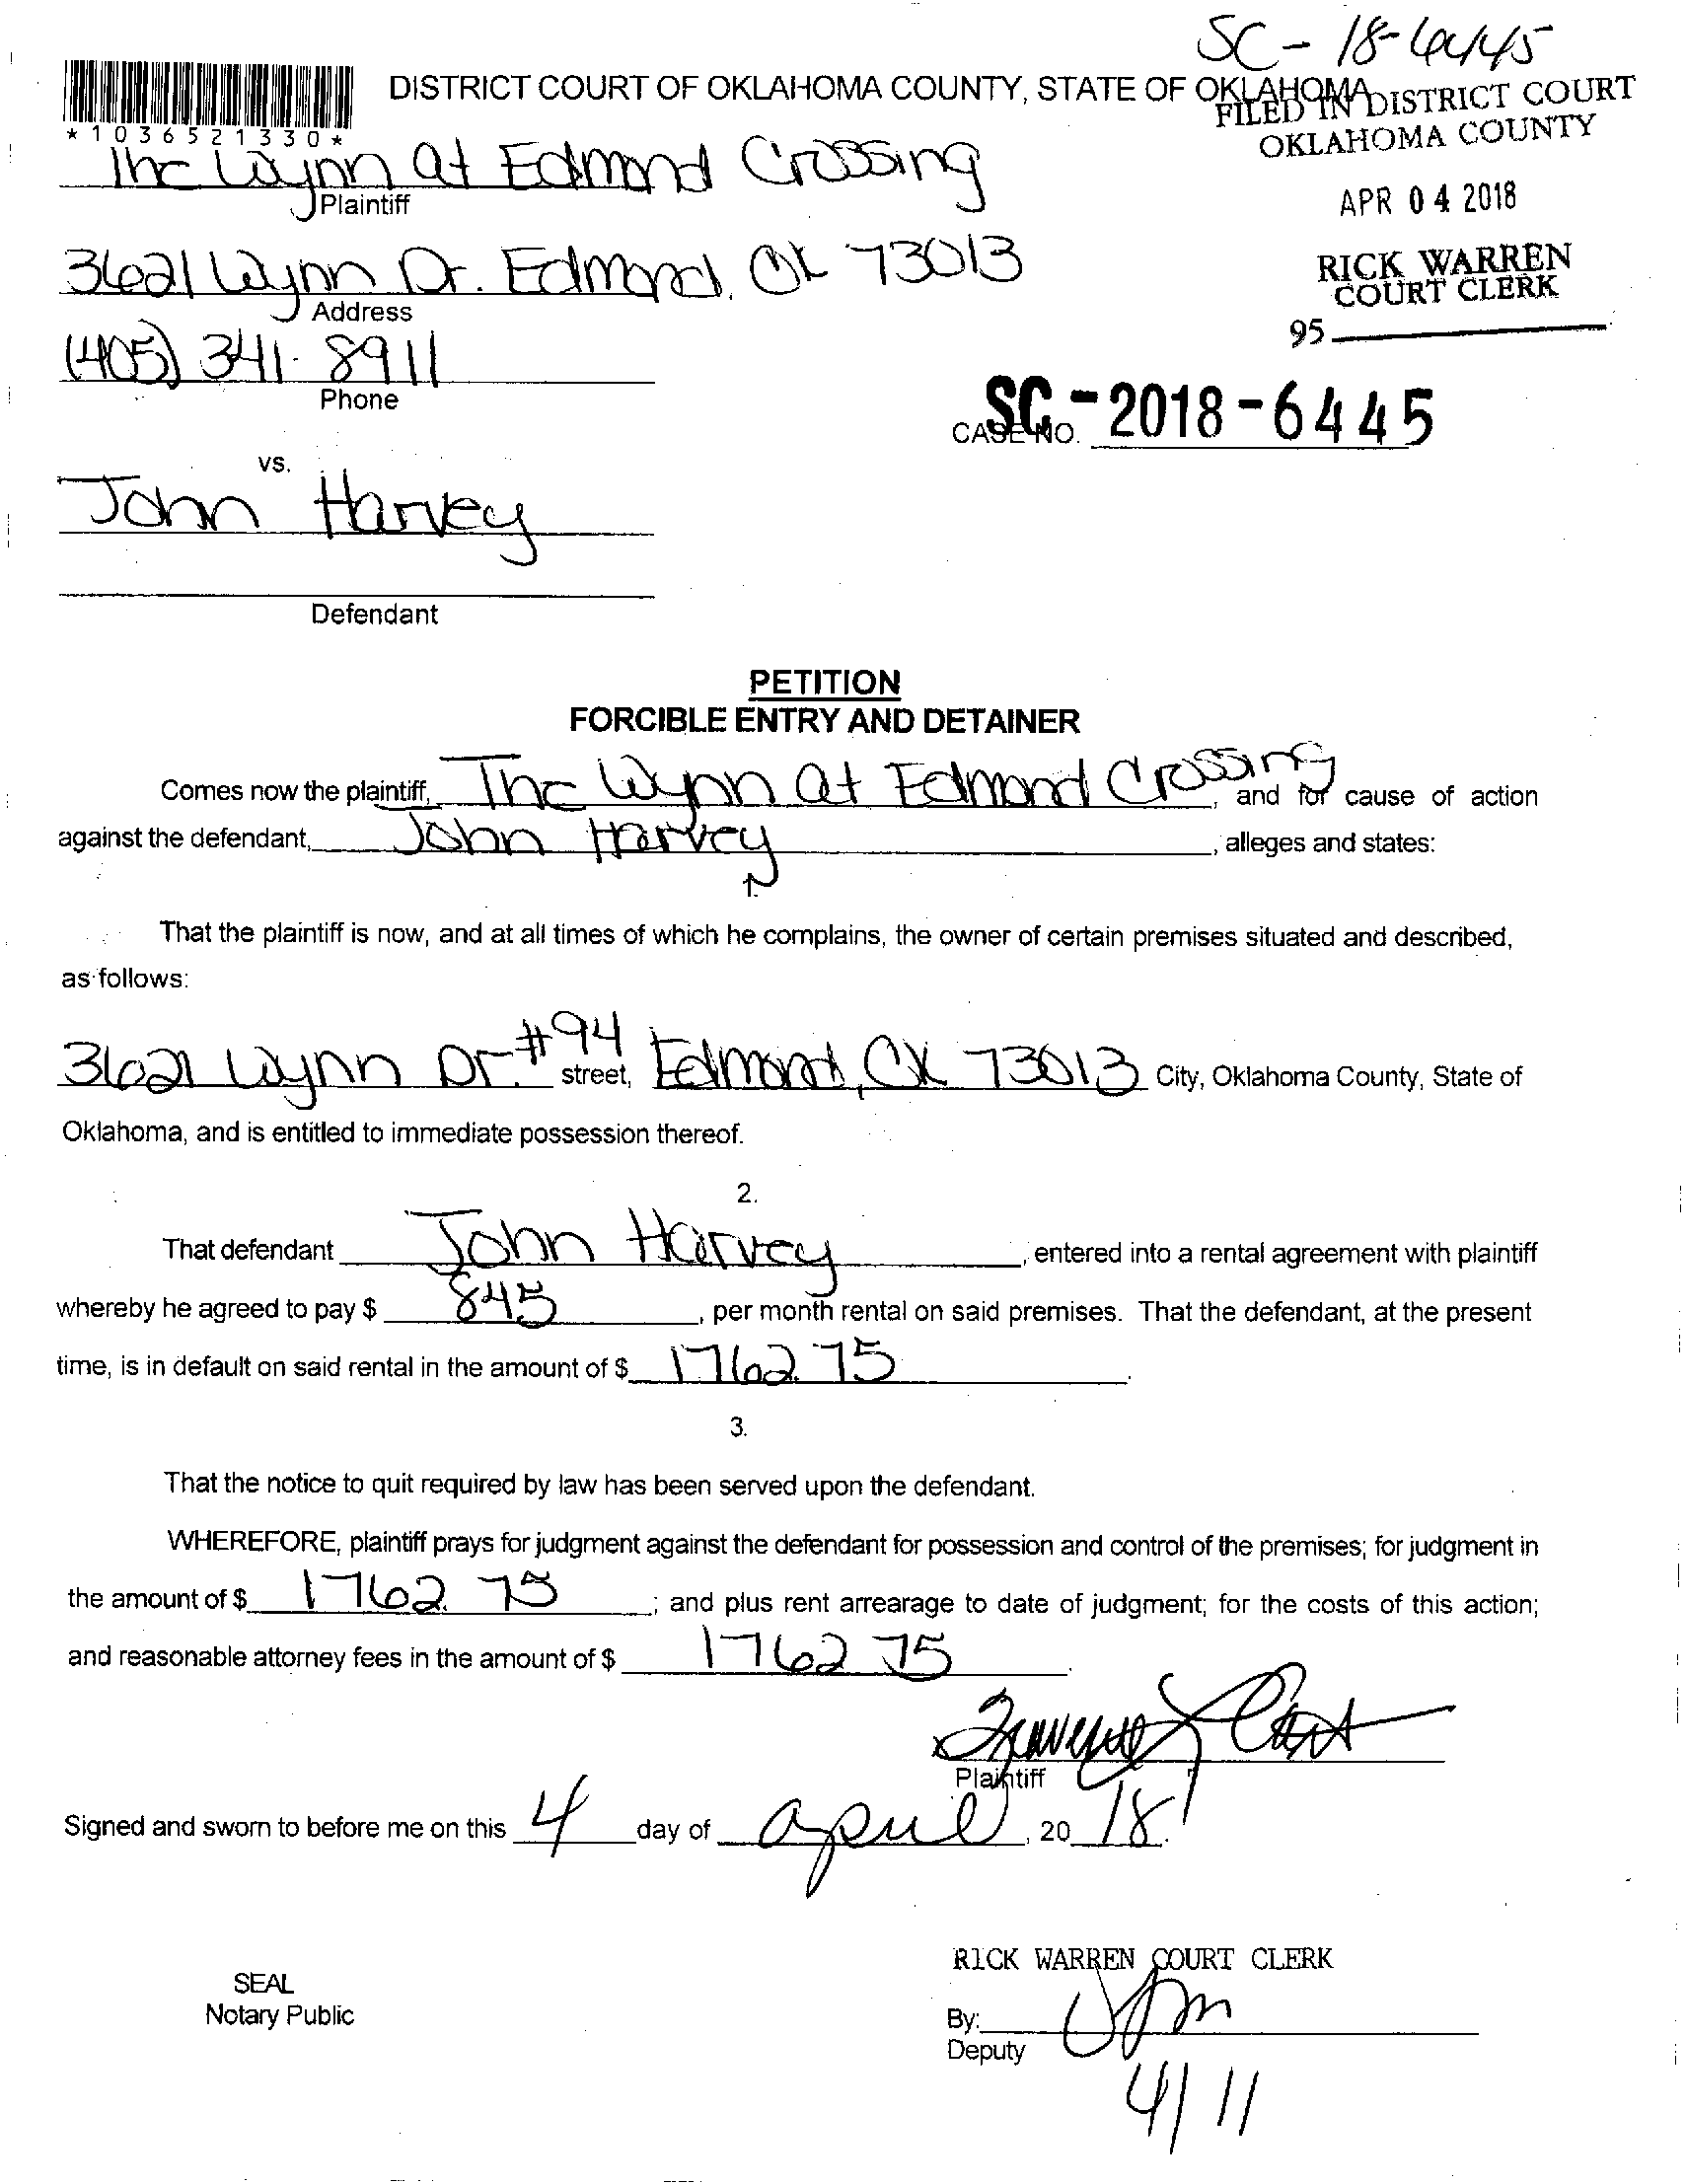 SC-18-6445
DISTRICT COURT OF OKLAHOMA COUNTY, STATE OF OKLAHOMA
FILED IN DISTRICT COURT
OKLAHOMA COUNTY
*1036521330*
The Wynn at Edmond Crossing
Plaintiff
APR 04 2018
3621 Wynn Dr. Edmond, Ok 73013
Address
RICK WARREN
COURT CLERK
95
(405) 341-8911
Phone
CASE NO. SC-2018-6445
vs.
John Harvey
Defendant
PETITION
FORCIBLE ENTRY AND DETAINER
Comes now the plaintiff, The Wynn at Edmond Crossing, and for cause of action
against the defendant, John Harvey, alleges and states:
1.
That the plaintiff is now, and at all times of which he complains, the owner of certain premises situated and described,
as follows:
3621 Wynn Dr. #94 street, Edmond, OK 73013 City, Oklahoma County, State of
Oklahoma, and is entitled to immediate possession thereof.
2.
That defendant John Harvey, entered into a rental agreement with plaintiff
whereby he agreed to pay $ 845, per month rental on said premises. That the defendant, at the present
time, is in default on said rental in the amount of $ 1762.75.
3.
That the notice to quit required by law has been served upon the defendant.
WHEREFORE, plaintiff prays for judgment against the defendant for possession and control of the premises; for judgment in
the amount of $ 1762.75; and plus rent arrearage to date of judgment; for the costs of this action;
and reasonable attorney fees in the amount of $ 1762 75.
Plaintiff
Signed and sworn to before me on this 4 day of April, 20 18.
RICK WARREN COURT CLERK
SEAL
Notary Public
By:
Deputy
4/11